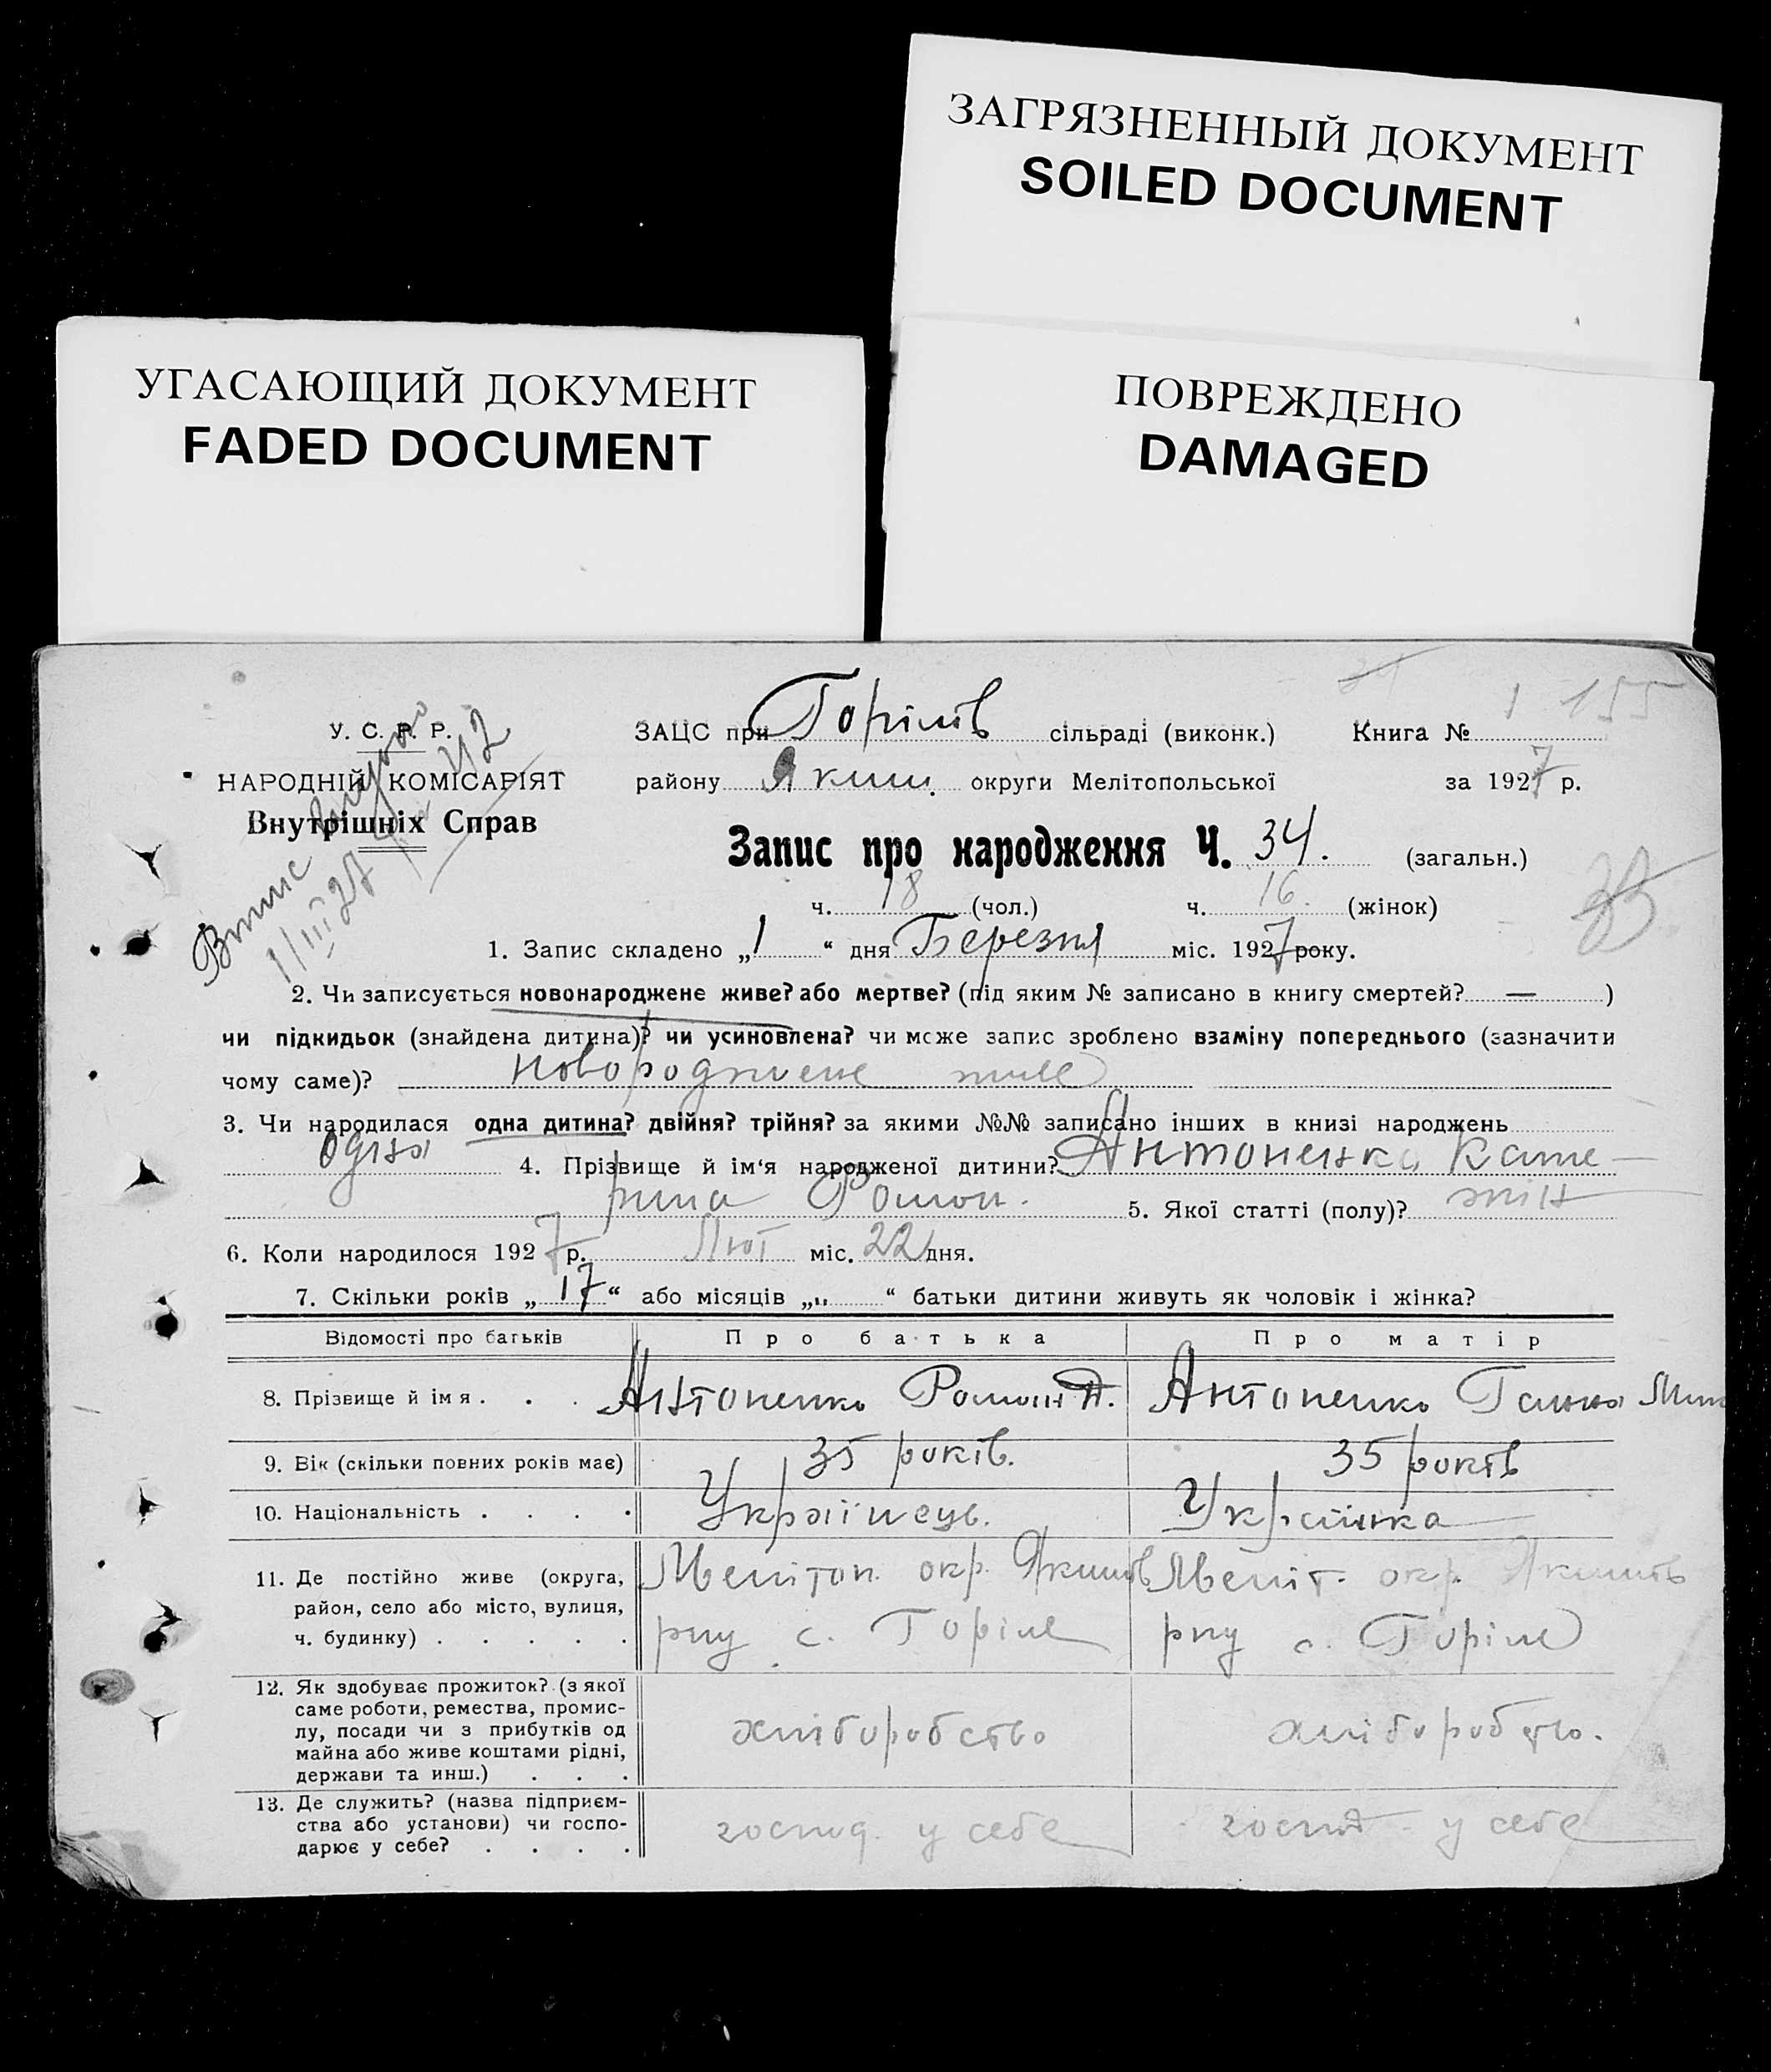 ЗАГРЯЗНЕННЫЙ ДОКУМЕНТ
SOILED DOCUMENT
УГАСАЮЩИЙ ДОКУМЕНТ
FADED DOCUMENT
ПОВРЕЖДЕНО
DAMAGED
У. С. Р. Р.
НАРОДНІЙ КОМІСАРІЯТ
Внутрішніх Справ
1/III 27
ЗАЦС при Горілів сільраді (виконк.) Книга № 1 155
району Яким. округи Мелітопольської за 1927 р.
Запис про народження Ч. 34. (загальн.)
ч. 18 (чол.) ч. 16. (жінок)
1. Запис складено „1“ дня Березня міс. 1927 року.
2. Чи записується новонароджене живе? або мертве? (під яким № записано в книгу смертей? — )
чи підкидьок (знайдена дитина)? чи усиновлена? чи може запис зроблено взаміну попереднього (зазначити
чому саме)? новороджене живе
3. Чи народилася одна дитина? двійня? трійня? за якими №№ записано інших в книзі народжень
одна 4. Прізвище й ім‘я народженої дитини? Антоненко Кате-
рина Роман. 5. Якої статті (полу)? жін
6. Коли народилося 1927 р. Лют міс. 22 дня.
7. Скільки років „17“ або місяців „“ батьки дитини живуть як чоловік і жінка?
Відомості про батьків Про батька Про матір
8. Прізвище й імя . . . Антоненко Роман Д. Антоненко Ганна Мик
9. Вік (скільки повних років має) 35 років. 35 років
10. Національність . . . . Українець. Українка
11. Де постійно живе (округа, район, село або місто, вулиця, ч. будинку) . . . . .
Мелітоп. окр. Якимів
рну с. Горіле
Меліт. окр. Якимів
рну с. Горіле
12. Як здобуває прожиток? (з якої
саме роботи, ремества, промис-
лу, посади чи з прибутків од
майна або живе коштами рідні,
держави та инш.) . . .
хліборобство
хліборобство.
13. Де служить? (назва підприєм-
ства або установи) чи госпо-
дарює у себе? . . . .
господ. у себе
господ. у себе